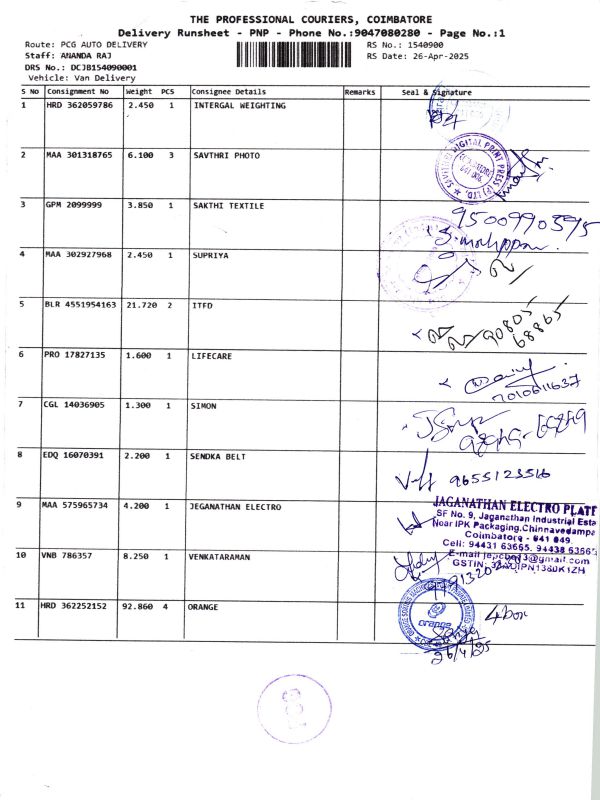 THE PROFESSIONAL COURIERS, COIMBATORE
Delivery Runsheet - PNP - Phone No.:9047080280 - Page No.:1
Route: PCG AUTO DELIVERY RS No.: 1540900
Staff: ANANDA RAJ RS Date: 26-Apr-2025
DRS No.: DCJB154090001
Vehicle: Van Delivery
S No Consignment No Weight PCS Consignee Details Remarks Seal & Signature
1 HRD 362059786 2.450 1 INTERGAL WEIGHTING
2 MAA 301318765 6.100 3 SAVTHRI PHOTO
3 GPM 2099999 3.850 1 SAKTHI TEXTILE
9500990595
4 MAA 302927968 2.450 1 SUPRIYA
5 BLR 4551954163 21.720 2 ITFD
90805
68865
6 PRO 17827135 1.600 1 LIFECARE
7010611637
7 CGL 14036905 1.300 1 SIMON
8 EDQ 16070391 2.200 1 SENDKA BELT
9655123516
9 MAA 575965734 4.200 1 JEGANATHAN ELECTRO
JAGANATHAN ELECTRO PLATE
SF No. 9, Jaganathan Industrial Esta
Near IPK Packaging,Chinnavedampa
Coimbatore - 641 049.
Cell: 94431 63665, 94438 63665
10 VNB 786357 8.250 1 VENKATARAMAN
11 HRD 362252152 92.860 4 ORANGE
orange
4 box
26/4/25